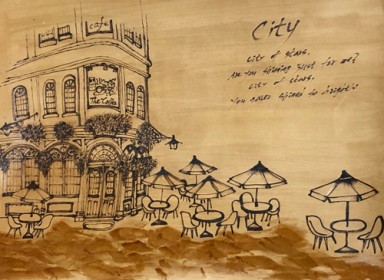 cafe
City
City of stars.
Are you shining just for me?
City of stars.
You never shined so brightly